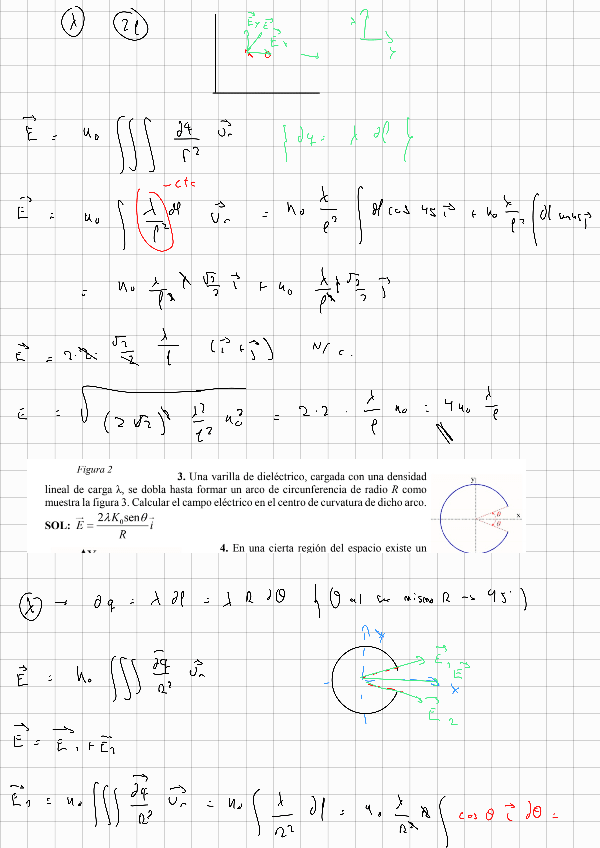 λ 2l
E_y E
E_x
x
y
E⃗ = K₀ ∭ dq/r² u⃗r { dq = λ dl }
- cte
E⃗ = K₀ ∫ λ/l² dl u⃗r = K₀ λ/l² ∫ dl cos 45 i⃗ + K₀ λ/l² ∫ dl sin 45 j⃗
= K₀ λ/l² l √2/2 i⃗ + K₀ λ/l² l √2/2 j⃗
E⃗ = 2·2 √2/2 λ/l (i⃗ + j⃗) N/C.
E = √((2√2)² λ²/l² K₀²) = 2·2 · λ/l K₀ = 4K₀ λ/l
Figura 2
3. Una varilla de dieléctrico, cargada con una densidad
lineal de carga λ, se dobla hasta formar un arco de circunferencia de radio R como
muestra la figura 3. Calcular el campo eléctrico en el centro de curvatura de dicho arco.
SOL: E⃗ = 2λK₀senθ/R i⃗
y
θ
θ
x
4. En una cierta región del espacio existe un
λ → dq = λ dl = λ R dθ { θ al ser mismo R → 45° }
y
E⃗₁
E⃗
x
E⃗₂
E⃗ = K₀ ∭ dq/R² u⃗r
E⃗ = E⃗₁ + E⃗₂
E⃗₁ = K₀ ∭ dq/R² u⃗r = K₀ ∫ λ/R² dl = K₀ λ/R² R ∫ cos θ i⃗ dθ =